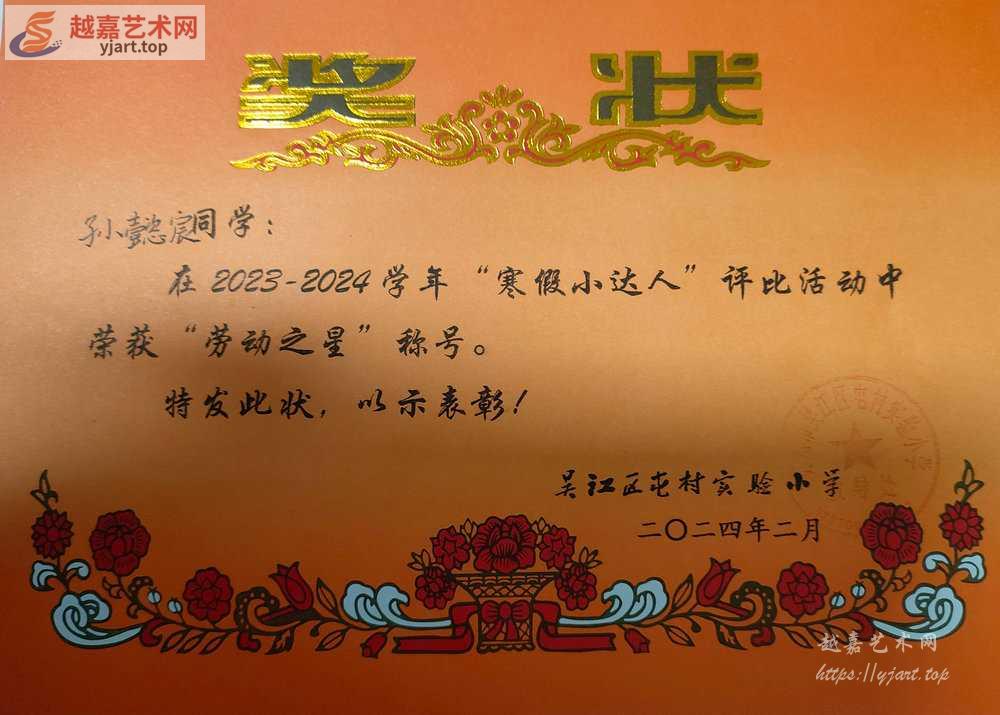 越嘉艺术网
yjart.top
奖状
孙懿宸同学：
在2023-2024学年“寒假小达人”评比活动中
荣获“劳动之星”称号。
特发此状，以示表彰！
吴江区屯村实验小学
二〇二四年二月
越嘉艺术网
https://yjart.top